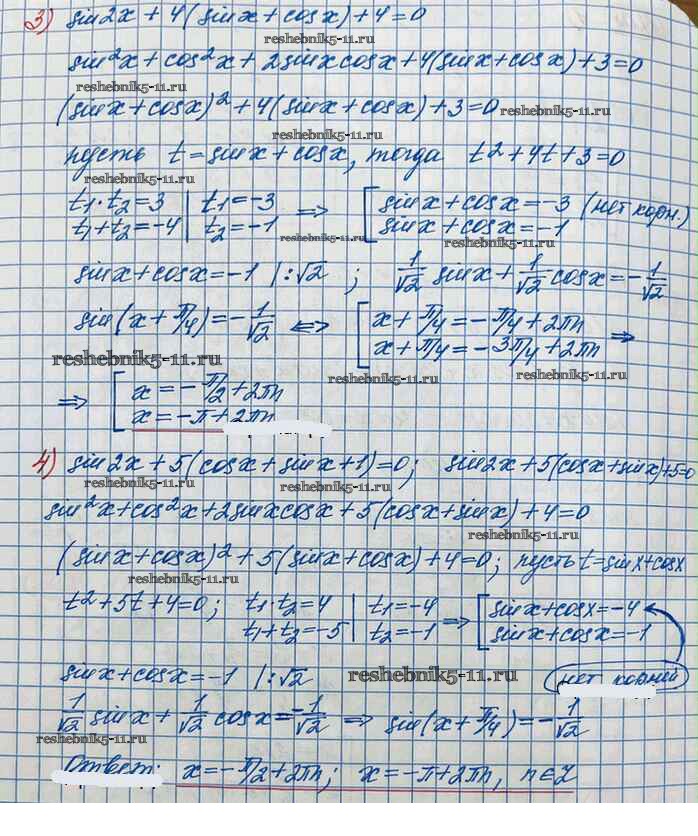 3) sin2x + 4(sinx + cosx) + 4 = 0
reshebnik5-11.ru
sin²x + cos²x + 2sinxcosx + 4(sinx + cosx) + 3 = 0
reshebnik5-11.ru
(sinx + cosx)² + 4(sinx + cosx) + 3 = 0 reshebnik5-11.ru
reshebnik5-11.ru
пусть t = sinx + cosx, тогда t² + 4t + 3 = 0
reshebnik5-11.ru
t₁·t₂ = 3 | t₁ = -3 ⇒ [ sinx + cosx = -3 (нет корн.)
t₁ + t₂ = -4 | t₂ = -1 [ sinx + cosx = -1
reshebnik5-11.ru reshebnik5-11.ru
sinx + cosx = -1 |:√2 ; 1/√2 sinx + 1/√2 cosx = -1/√2
reshebnik5-11.ru
sin(x + π/4) = -1/√2 ⇔ [ x + π/4 = -π/4 + 2πn
[ x + π/4 = -3π/4 + 2πn ⇒
reshebnik5-11.ru reshebnik5-11.ru reshebnik5-11.ru
⇒ [ x = -π/2 + 2πn
[ x = -π + 2πn
4) sin2x + 5(cosx + sinx + 1) = 0; sin2x + 5(cosx + sinx) + 5 = 0
reshebnik5-11.ru reshebnik5-11.ru
sin²x + cos²x + 2sinxcosx + 5(cosx + sinx) + 4 = 0
reshebnik5-11.ru
(sinx + cosx)² + 5(sinx + cosx) + 4 = 0; пусть t = sinx + cosx
reshebnik5-11.ru
t² + 5t + 4 = 0; t₁·t₂ = 4 | t₁ = -4 ⇒ [ sinx + cosx = -4
t₁ + t₂ = -5 | t₂ = -1 [ sinx + cosx = -1
reshebnik5-11.ru
sinx + cosx = -1 |:√2 reshebnik5-11.ru нет корней
1/√2 sinx + 1/√2 cosx = -1/√2 ⇒ sin(x + π/4) = -1/√2
reshebnik5-11.ru
Ответ: x = -π/2 + 2πn; x = -π + 2πn, n∈Z
reshebnik5-11.ru